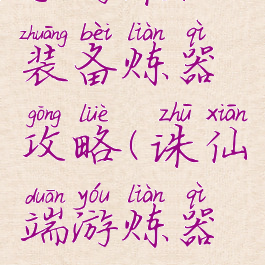 zhuāng bèi liàn qì
装备炼器
gōng lüè zhū xiān
攻略(诛仙
duān yóu liàn qì
端游炼器